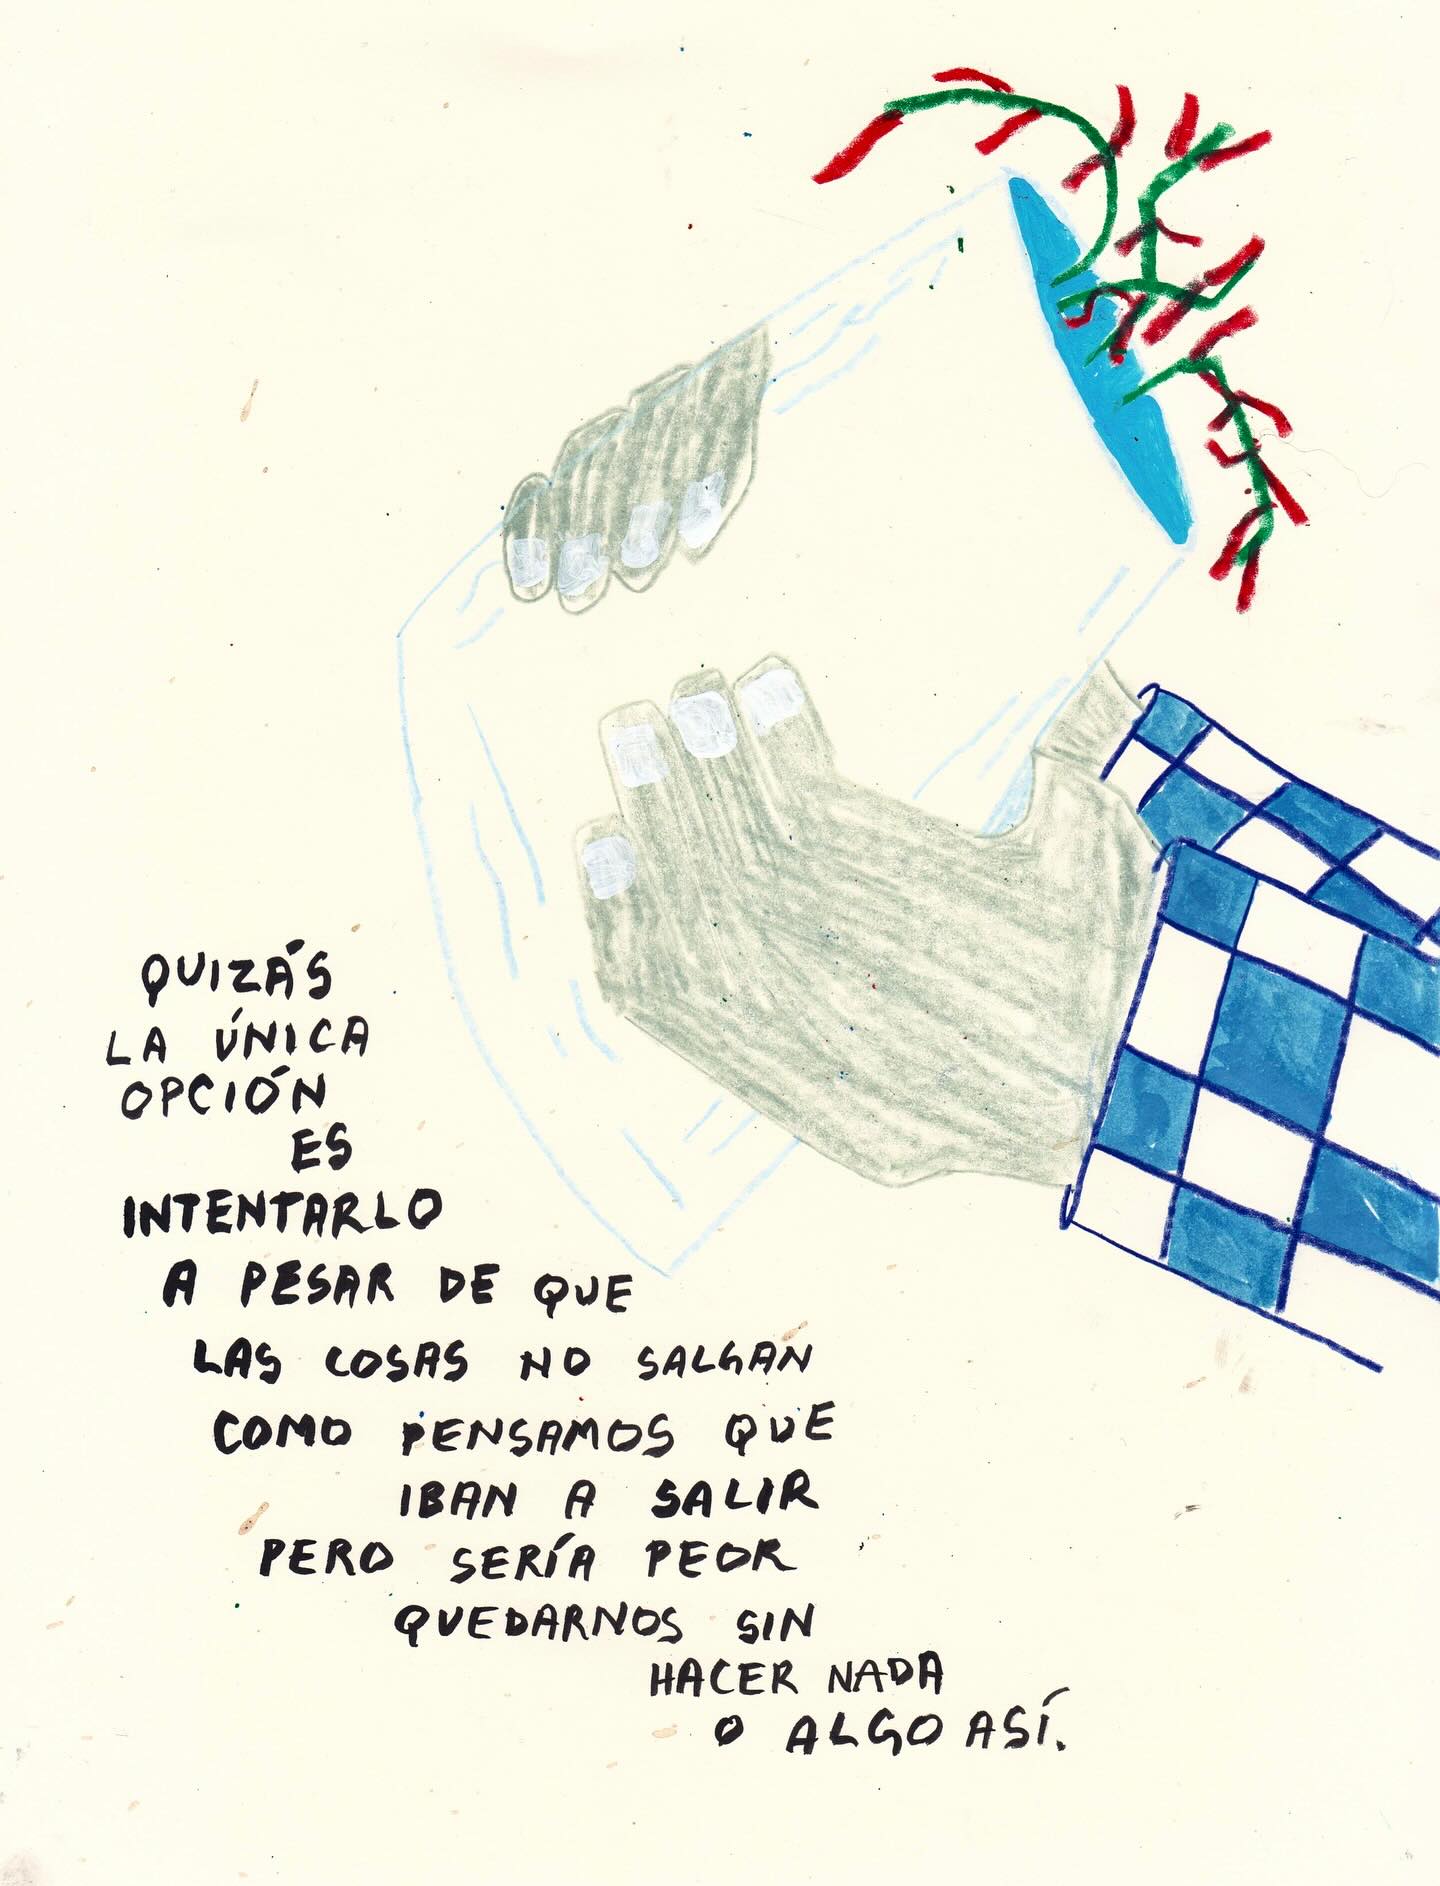 QUIZÁS
LA ÚNICA
OPCIÓN
ES
INTENTARLO
A PESAR DE QUE
LAS COSAS NO SALGAN
COMO PENSAMOS QUE
IBAN A SALIR
PERO SERÍA PEOR
QUEDARNOS SIN
HACER NADA
O ALGO ASÍ.